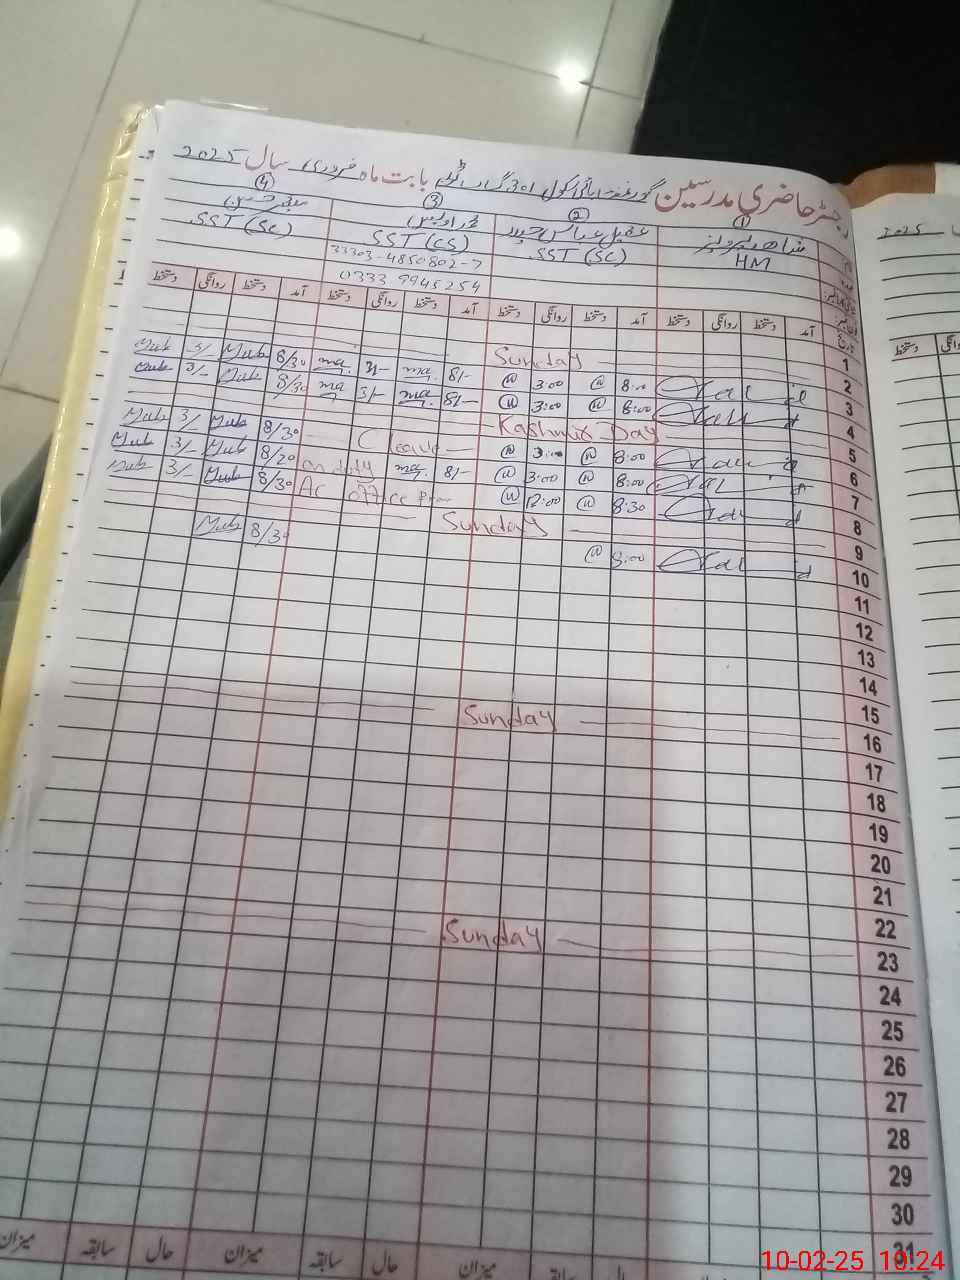 رجسٹر حاضری مدرسین گورنمنٹ ہائی سکول 301 گ ب ٹوبہ بابت ماہ فروری سال 2025
① ② ③ ④
شاھد پرویز عقیل عباس حیدر
HM SST (SC) SST (CS) SST (SC)
33303-4850802-7
0333 9945254
تاریخ آمد دستخط روانگی دستخط آمد دستخط روانگی دستخط آمد دستخط روانگی دستخط آمد دستخط روانگی دستخط
1
Sunday
2 8:00 3:00 8/- 3/- 8/30 3/-
3 8:00 3:00 8/- 3/- 8/30 3/-
4
Kashmir Day
5 8:00 3:00 C leave 8/30 3/-
6 8:00 3:00 8/- on duty 8/30 3/-
7 8:30 12:00 AC office 8/30 3/-
8
Sunday
9 8:00 8/30
10
11
12
13
14
15
Sunday
16
17
18
19
20
21
22
Sunday
23
24
25
26
27
28
29
30
31
حال سابقہ میزان حال سابقہ میزان
2025
روانگی دستخط
10-02-25 10:24